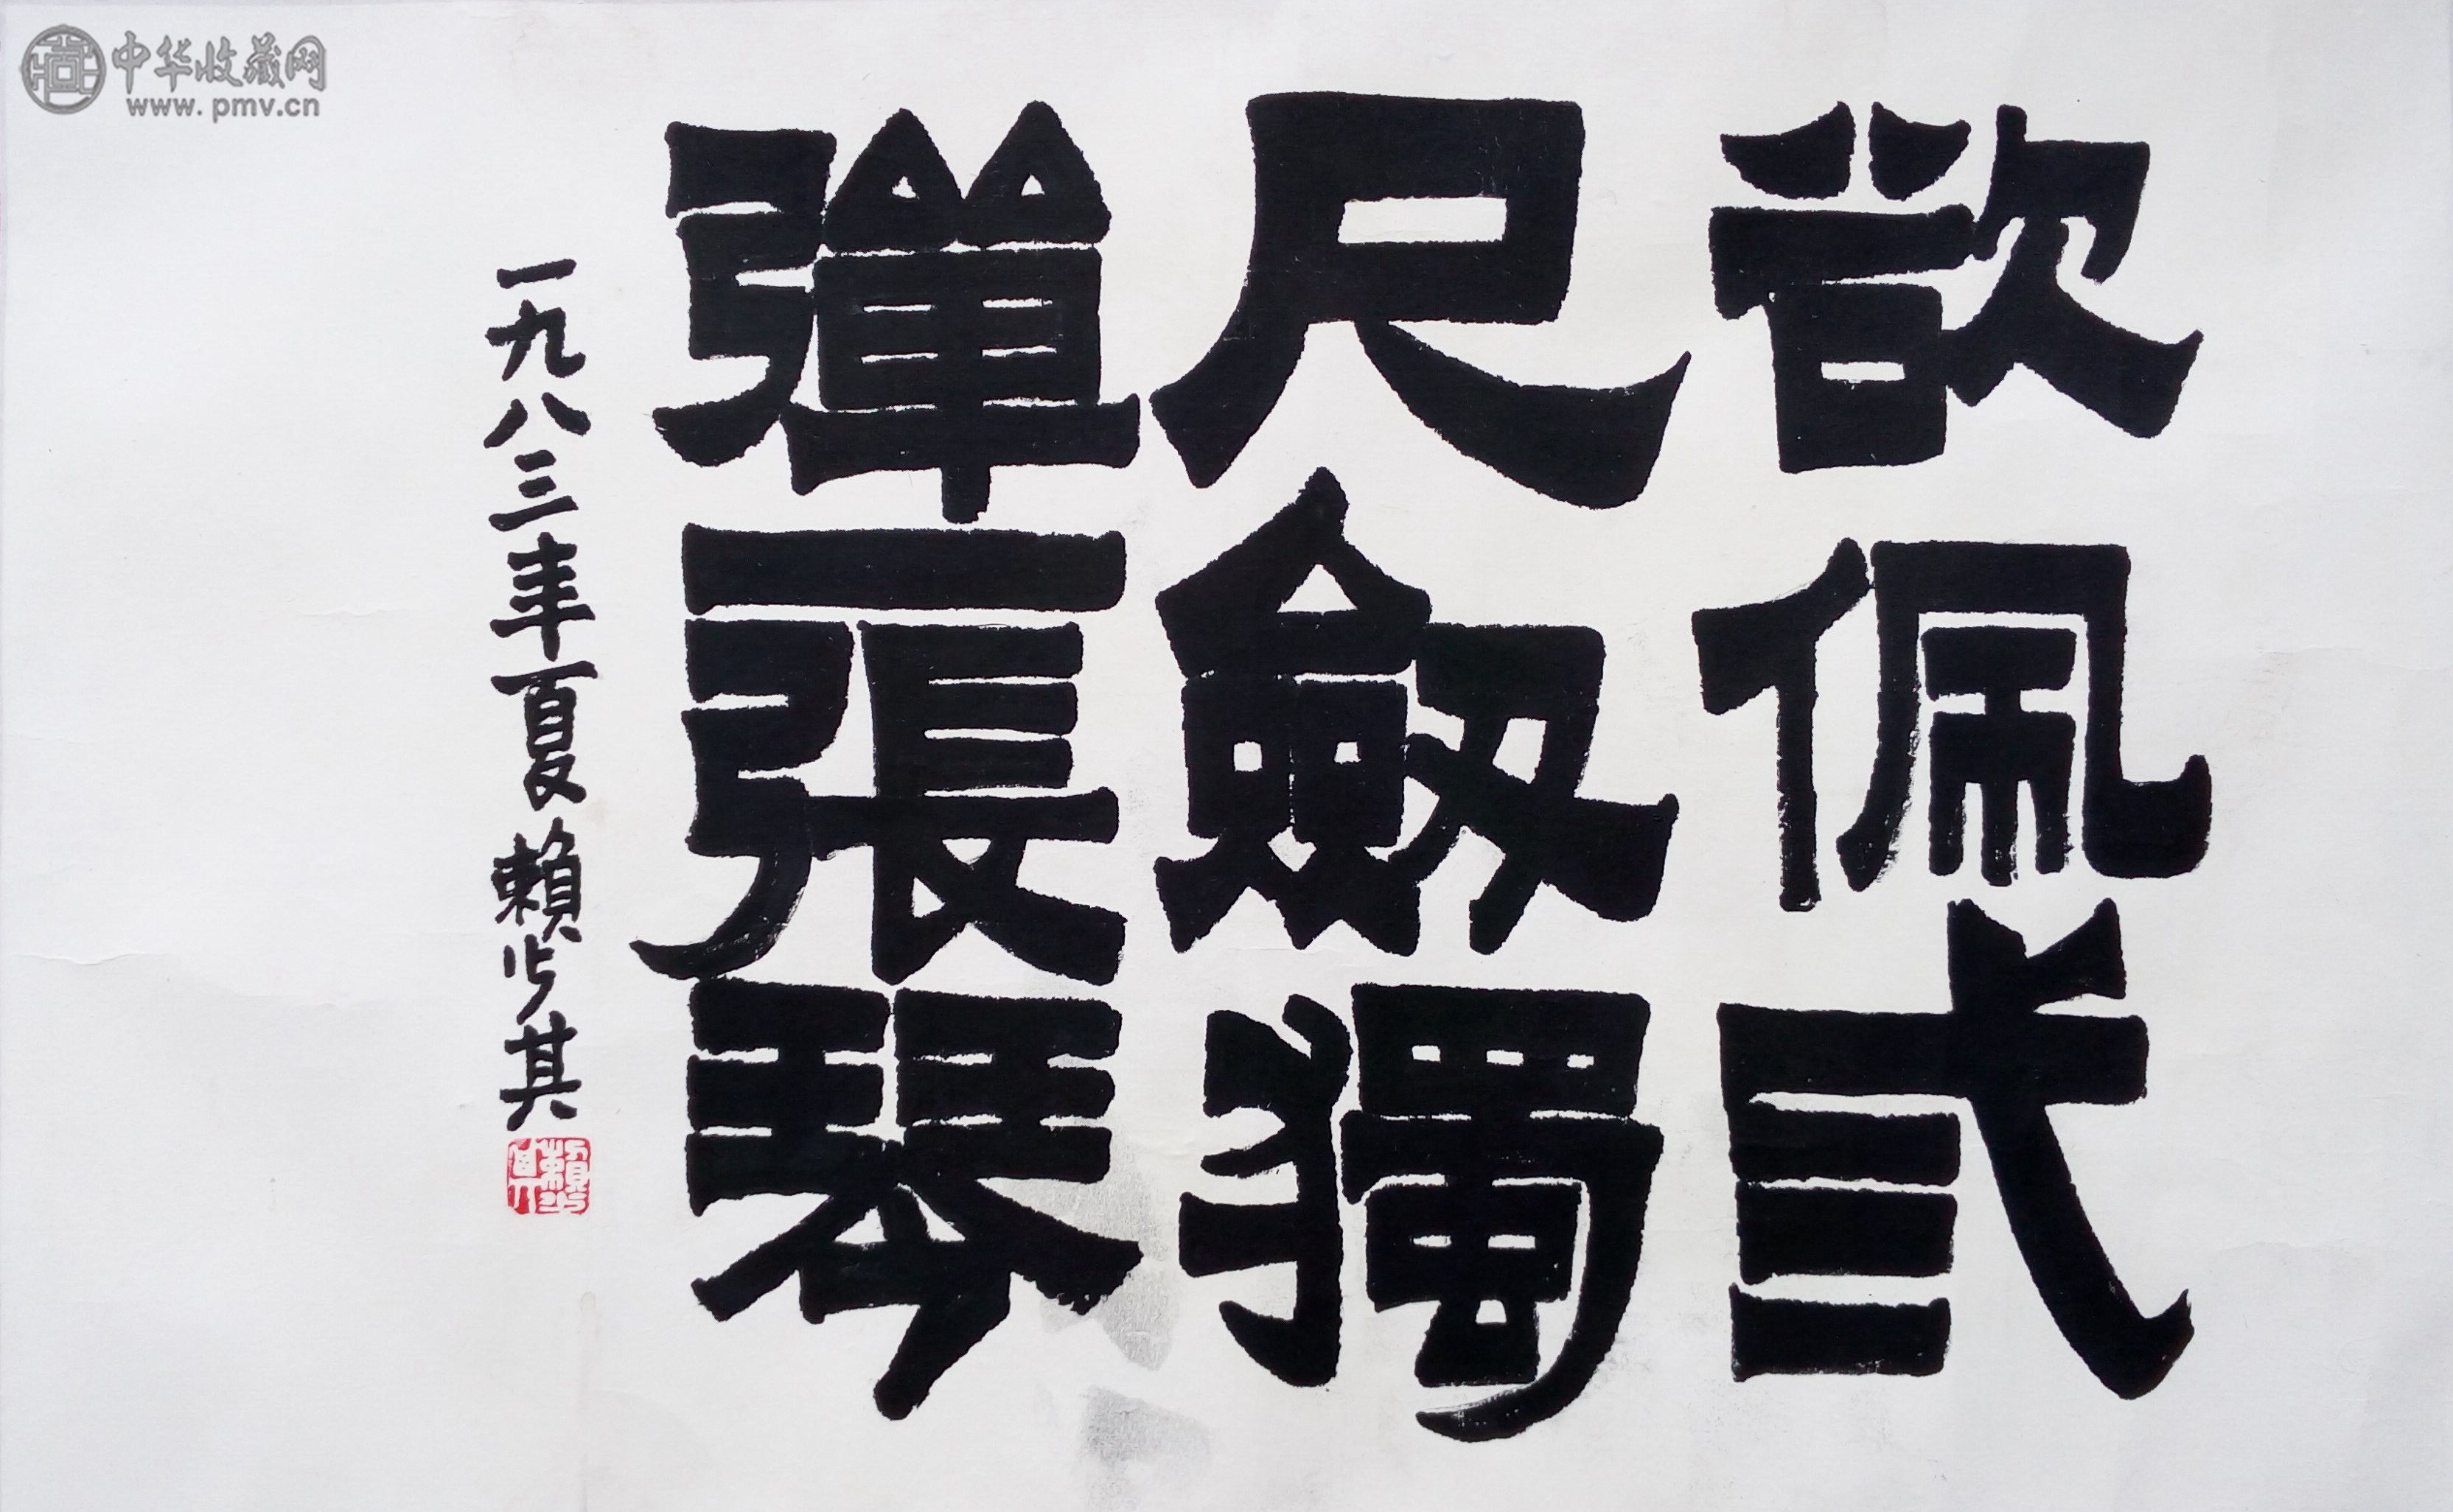 欲佩弎
尺劒獨
彈一張琴
一九八三年夏賴少其
賴少其
中华收藏网
www.pmv.cn